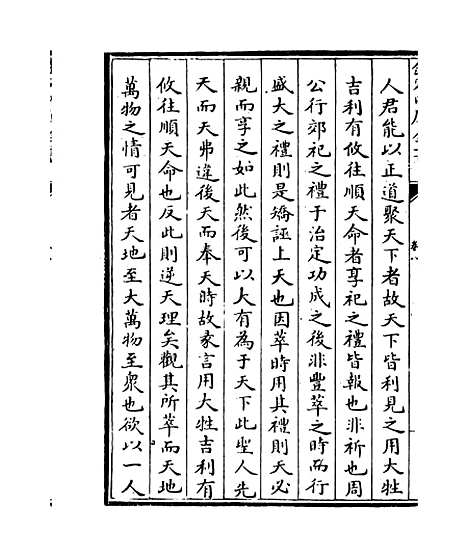 人君能以正道聚天下者故天下皆利見之用大牲
吉利有攸往順天命者享祀之禮皆報也非祈也周
公行郊祀之禮于治定功成之後非豐萃之時而行
盛大之禮則是矯誣上天也因萃時用其禮則天必
親而享之如此然後可以大有為于天下此聖人先
天而天弗違後天而奉天時故彖言用大牲吉利有
攸往順天命也反此則逆天理矣觀其所萃而天地
萬物之情可見者天地至大萬物至衆也欲以一人